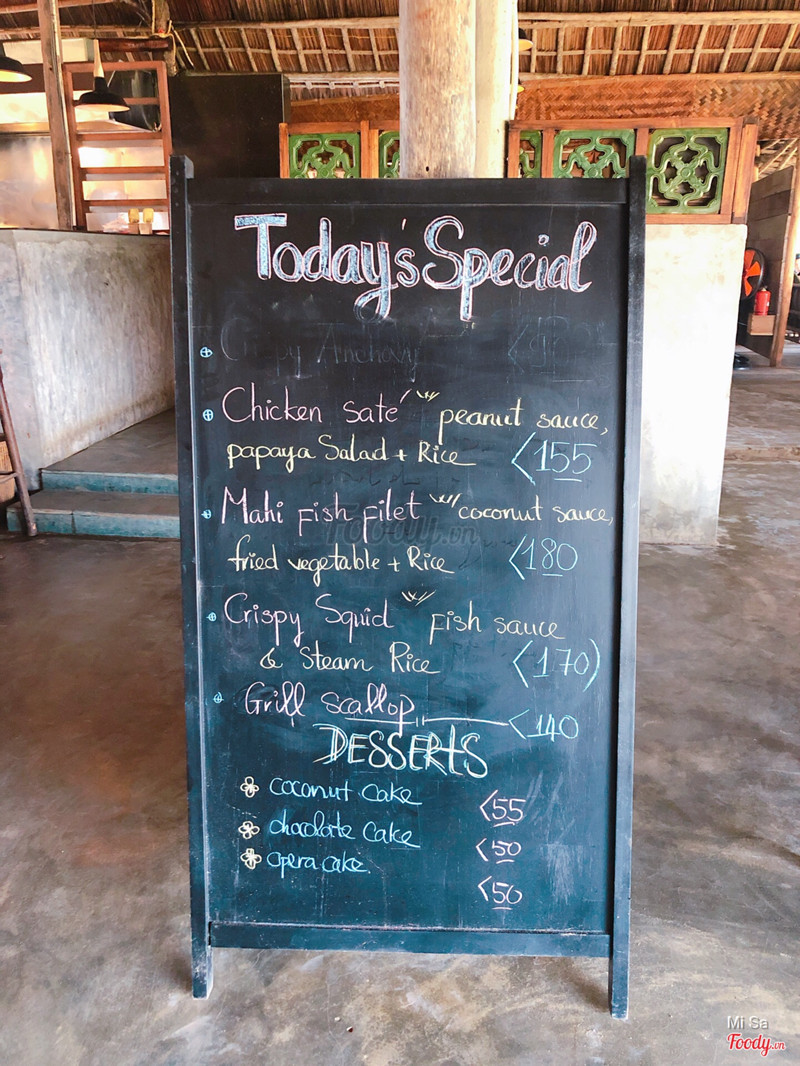 Today's Special
Crispy Anchovy
Chicken saté w/ peanut sauce,
papaya Salad + Rice <155
Mahi Fish Filet w/ coconut sauce,
fried vegetable + Rice <180
Crispy Squid w/ Fish sauce
& Steam Rice <170)
Grill scallop <140
DESSERTS
coconut cake <55
chocolate cake <50
opera cake. <50
Foody.vn
Mi Sa
Foody.vn